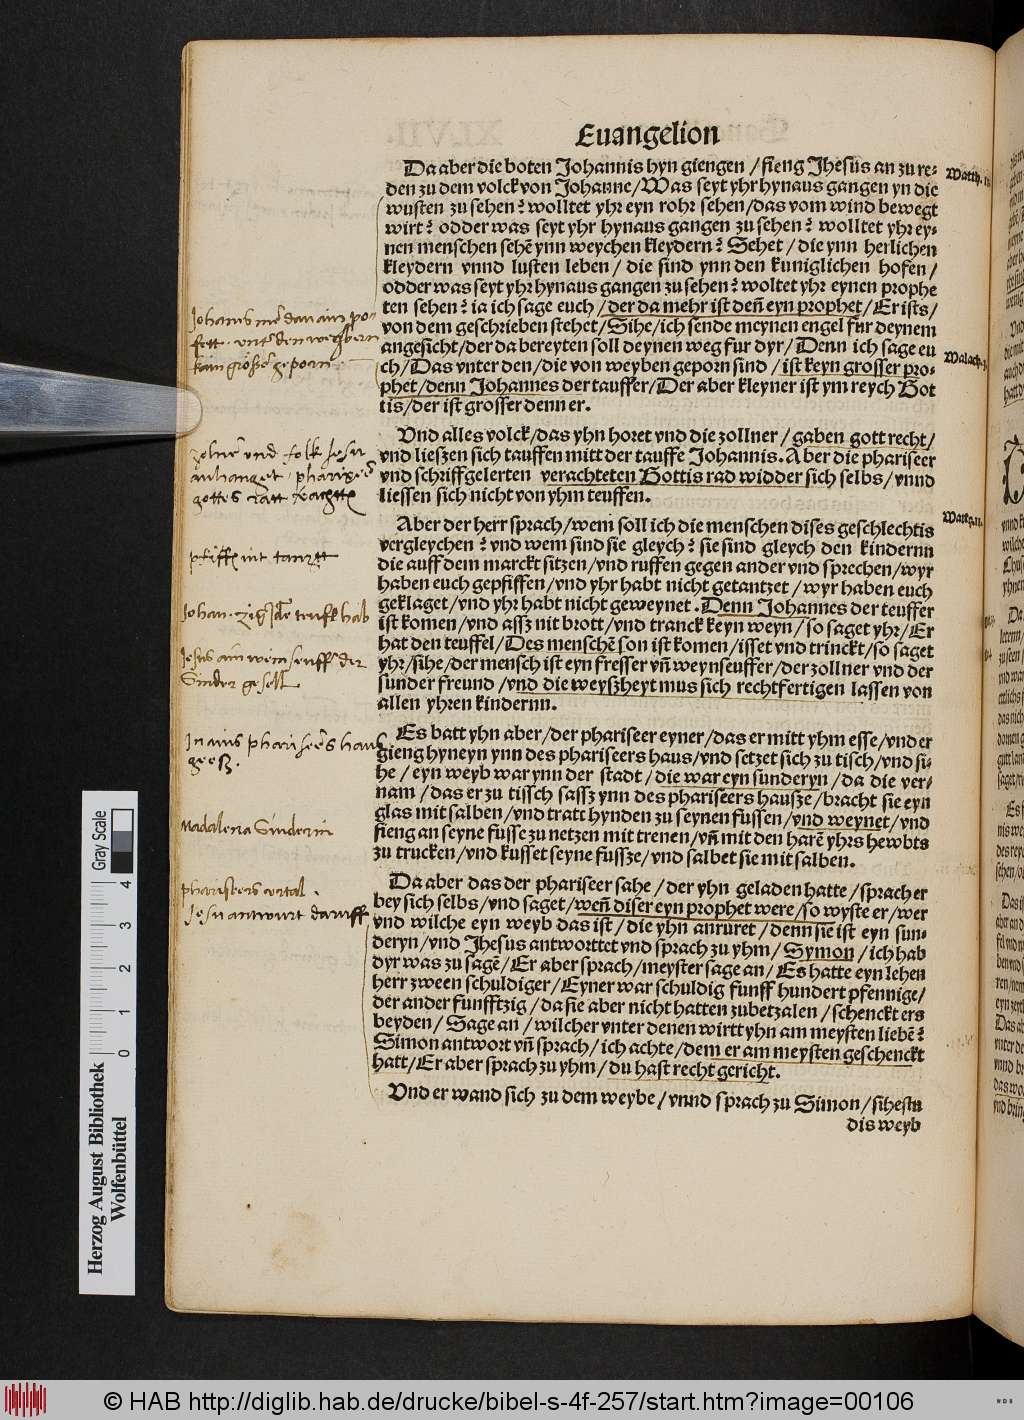 Euangelion
Da aber die boten Johannis hyn giengen / fieng Jhesus an zu re-
den zu dem volck von Johanne / Was seyt yhr hynaus gangen yn die
wusten zu sehen? wolltet yhr eyn rohr sehen / das vom wind bewegt
wirt? odder was seyt yhr hynaus gangen zu sehen? wolltet yhr ey-
nen menschen sehē ynn weychen kleydern? Sehet / die ynn herlichen
kleydern vnnd lusten leben / die sind ynn den kuniglichen hofen /
odder was seyt yhr hynaus gangen zu sehen? woltet yhr eynen prophe
ten sehen? ia ich sage euch / der da mehr ist deñ eyn prophet / Er ists /
von dem geschrieben stehet / Sihe / ich sende meynen engel fur deynem
angesicht / der da bereyten soll deynen weg fur dyr / Denn ich sage eu
ch / Das vnter den / die von weyben geporn sind / ist keyn grosser pro-
phet / denn Johannes der tauffer / Der aber kleyner ist ym reych Got
tis / der ist grosser denn er.
Vnd alles volck / das yhn horet vnd die zollner / gaben gott recht /
vnd lieszen sich tauffen mitt der tauffe Johannis. Aber die phariseer
vnd schrifftgelerten verachteten Gottis rad widder sich selbs / vnnd
liessen sich nicht von yhm teuffen.
Aber der herr sprach / wem soll ich die menschen dises geschlechtis
vergleychen? vnd wem sind sie gleych? sie sind gleych den kindernn
die auff dem marckt sitzen / vnd ruffen gegen ander vnd sprechen / wyr
haben euch gepfiffen / vnd yhr habt nicht getantzet / wyr haben euch
geklaget / vnd yhr habt nicht geweynet. Denn Johannes der teuffer
ist komen / vnd assz nit brott / vnd tranck keyn weyn / so saget yhr / Er
hat den teuffel / Des menschē son ist komen / isset vnd trinckt / so saget
yhr / sihe / der mensch ist eyn fresser vñ weynseuffer / der zollner vnd der
sunder freund / vnd die weyszheyt mus sich rechtfertigen lassen von
allen yhren kindernn.
Es batt yhn aber / der phariseer eyner / das er mitt yhm esse / vnd er
gieng hyneyn ynn des phariseers haus / vnd setzet sich zu tisch / vnd si-
he / eyn weyb war ynn der stadt / die war eyn sunderyn / da die ver-
nam / das er zu tissch sassz ynn des phariseers hausze / bracht sie eyn
glas mit salben / vnd tratt hynden zu seynen fussen / vnd weynet / vnd
fieng an seyne fusse zu netzen mit trenen / vñ mit den harē yhrs hewbts
zu trucken / vnd kusset seyne fussze / vnd salbet sie mit salben.
Da aber das der phariseer sahe / der yhn geladen hatte / sprach er
bey sich selbs / vnd saget / weñ diser eyn prophet were / so wyste er / wer
vnd wilche eyn weyb das ist / die yhn anruret / denn sie ist eyn sun-
deryn / vnd Jhesus antworttet vnd sprach zu yhm / Symon / ich hab
dyr was zu sagē / Er aber sprach / meyster sage an / Es hatte eyn lehen
herr zween schuldiger / Eyner war schuldig funff hundert pfennige /
der ander funfftzig / da sie aber nicht hatten zubetzalen / schenckt ers
beyden / Sage an / wilcher vnter denen wirtt yhn am meysten liebē?
Simon antwort vñ sprach / ich achte / dem er am meysten geschenckt
hatt / Er aber sprach zu yhm / du hast recht gericht.
Vnd er wand sich zu dem weybe / vnnd sprach zu Simon / sihestu
dis weyb
Matth. 11
Malach. 3.
Matt. 11.
zolner vnd folk Jesu
anhanget. phariseer
gottes ratt veracht
Jn ains pharisees haus
geesz.
Madalena Sinderin
Jesu antwurt darauff
Herzog August Bibliothek
Wolfenbüttel
Gray Scale
0 1 2 3 4
© HAB http://diglib.hab.de/drucke/bibel-s-4f-257/start.htm?image=00106